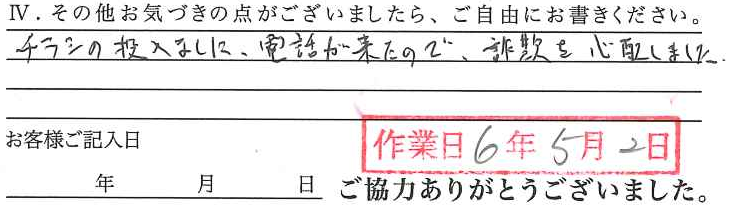 Ⅳ．その他お気づきの点がございましたら、ご自由にお書きください。
チラシの投入なしに、電話が来たので、詐欺を心配しました.
お客様ご記入日
作業日6年5月2日
年 月 日 ご協力ありがとうございました。